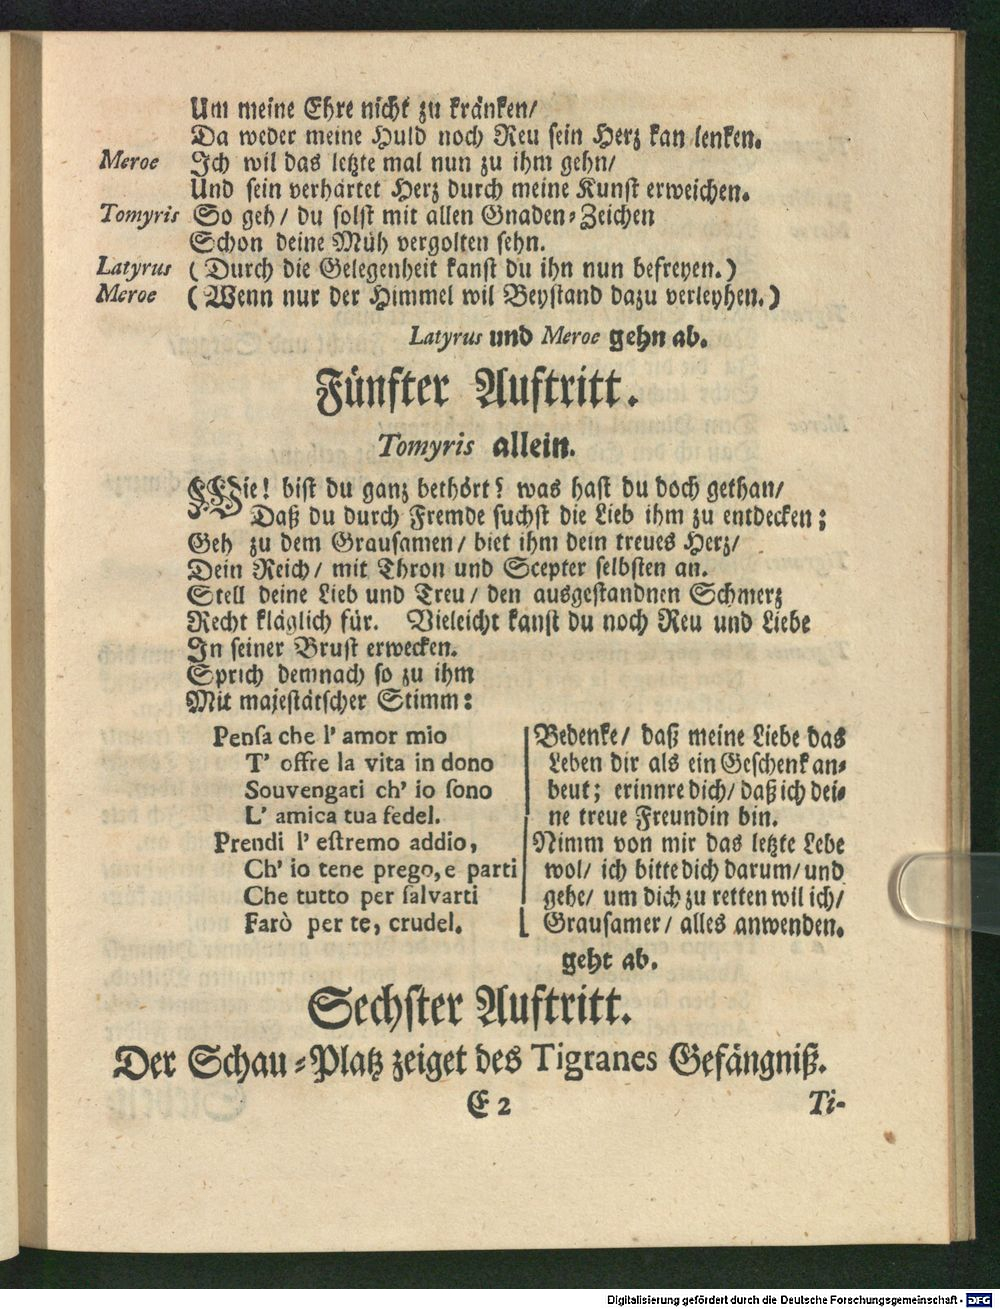 Um meine Ehre nicht zu kränken/
Da weder meine Huld noch Reu sein Herz kan lenken.
Meroe Ich wil das letzte mal nun zu ihm gehn/
Und sein verhärtet Herz durch meine Kunst erweichen.
Tomyris So geh/ du solst mit allen Gnaden-Zeichen
Schon deine Müh vergolten sehn.
Latyrus (Durch die Gelegenheit kanst du ihn nun befreyen.)
Meroe (Wenn nur der Himmel wil Beystand dazu verleyhen.)
Latyrus und Meroe gehn ab.
Fünfter Auftritt.
Tomyris allein.
Wie! bist du ganz bethört? was hast du doch gethan/
Daß du durch Fremde suchst die Lieb ihm zu entdecken;
Geh zu dem Grausamen/ biet ihm dein treues Herz/
Dein Reich/ mit Thron und Scepter selbsten an.
Stell deine Lieb und Treu/ den ausgestandnen Schmerz
Recht kläglich für. Vieleicht kanst du noch Reu und Liebe
In seiner Brust erwecken.
Sprich demnach so zu ihm
Mit majestätscher Stimm:
Pensa che l' amor mio
T' offre la vita in dono
Souvengati ch' io sono
L' amica tua fedel.
Prendi l' estremo addio,
Ch' io tene prego, e parti
Che tutto per salvarti
Farò per te, crudel.
Bedenke/ daß meine Liebe das
Leben dir als ein Geschenk an-
beut; erinnre dich/ daß ich dei-
ne treue Freundin bin.
Nimm von mir das letzte Lebe
wol/ ich bitte dich darum/ und
gehe/ um dich zu retten wil ich/
Grausamer/ alles anwenden.
geht ab.
Sechster Auftritt.
Der Schau-Platz zeiget des Tigranes Gefängniß.
E 2
Ti-
Digitalisierung gefördert durch die Deutsche Forschungsgemeinschaft - DFG